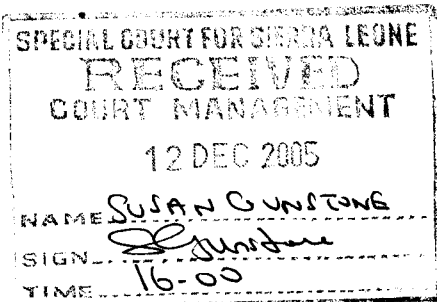 SPECIAL COURT FOR SIERRA LEONE
RECEIVED
COURT MANAGEMENT
12 DEC 2005
NAME SUSAN GUNSTONE
SIGN SGunstone
TIME 16-00